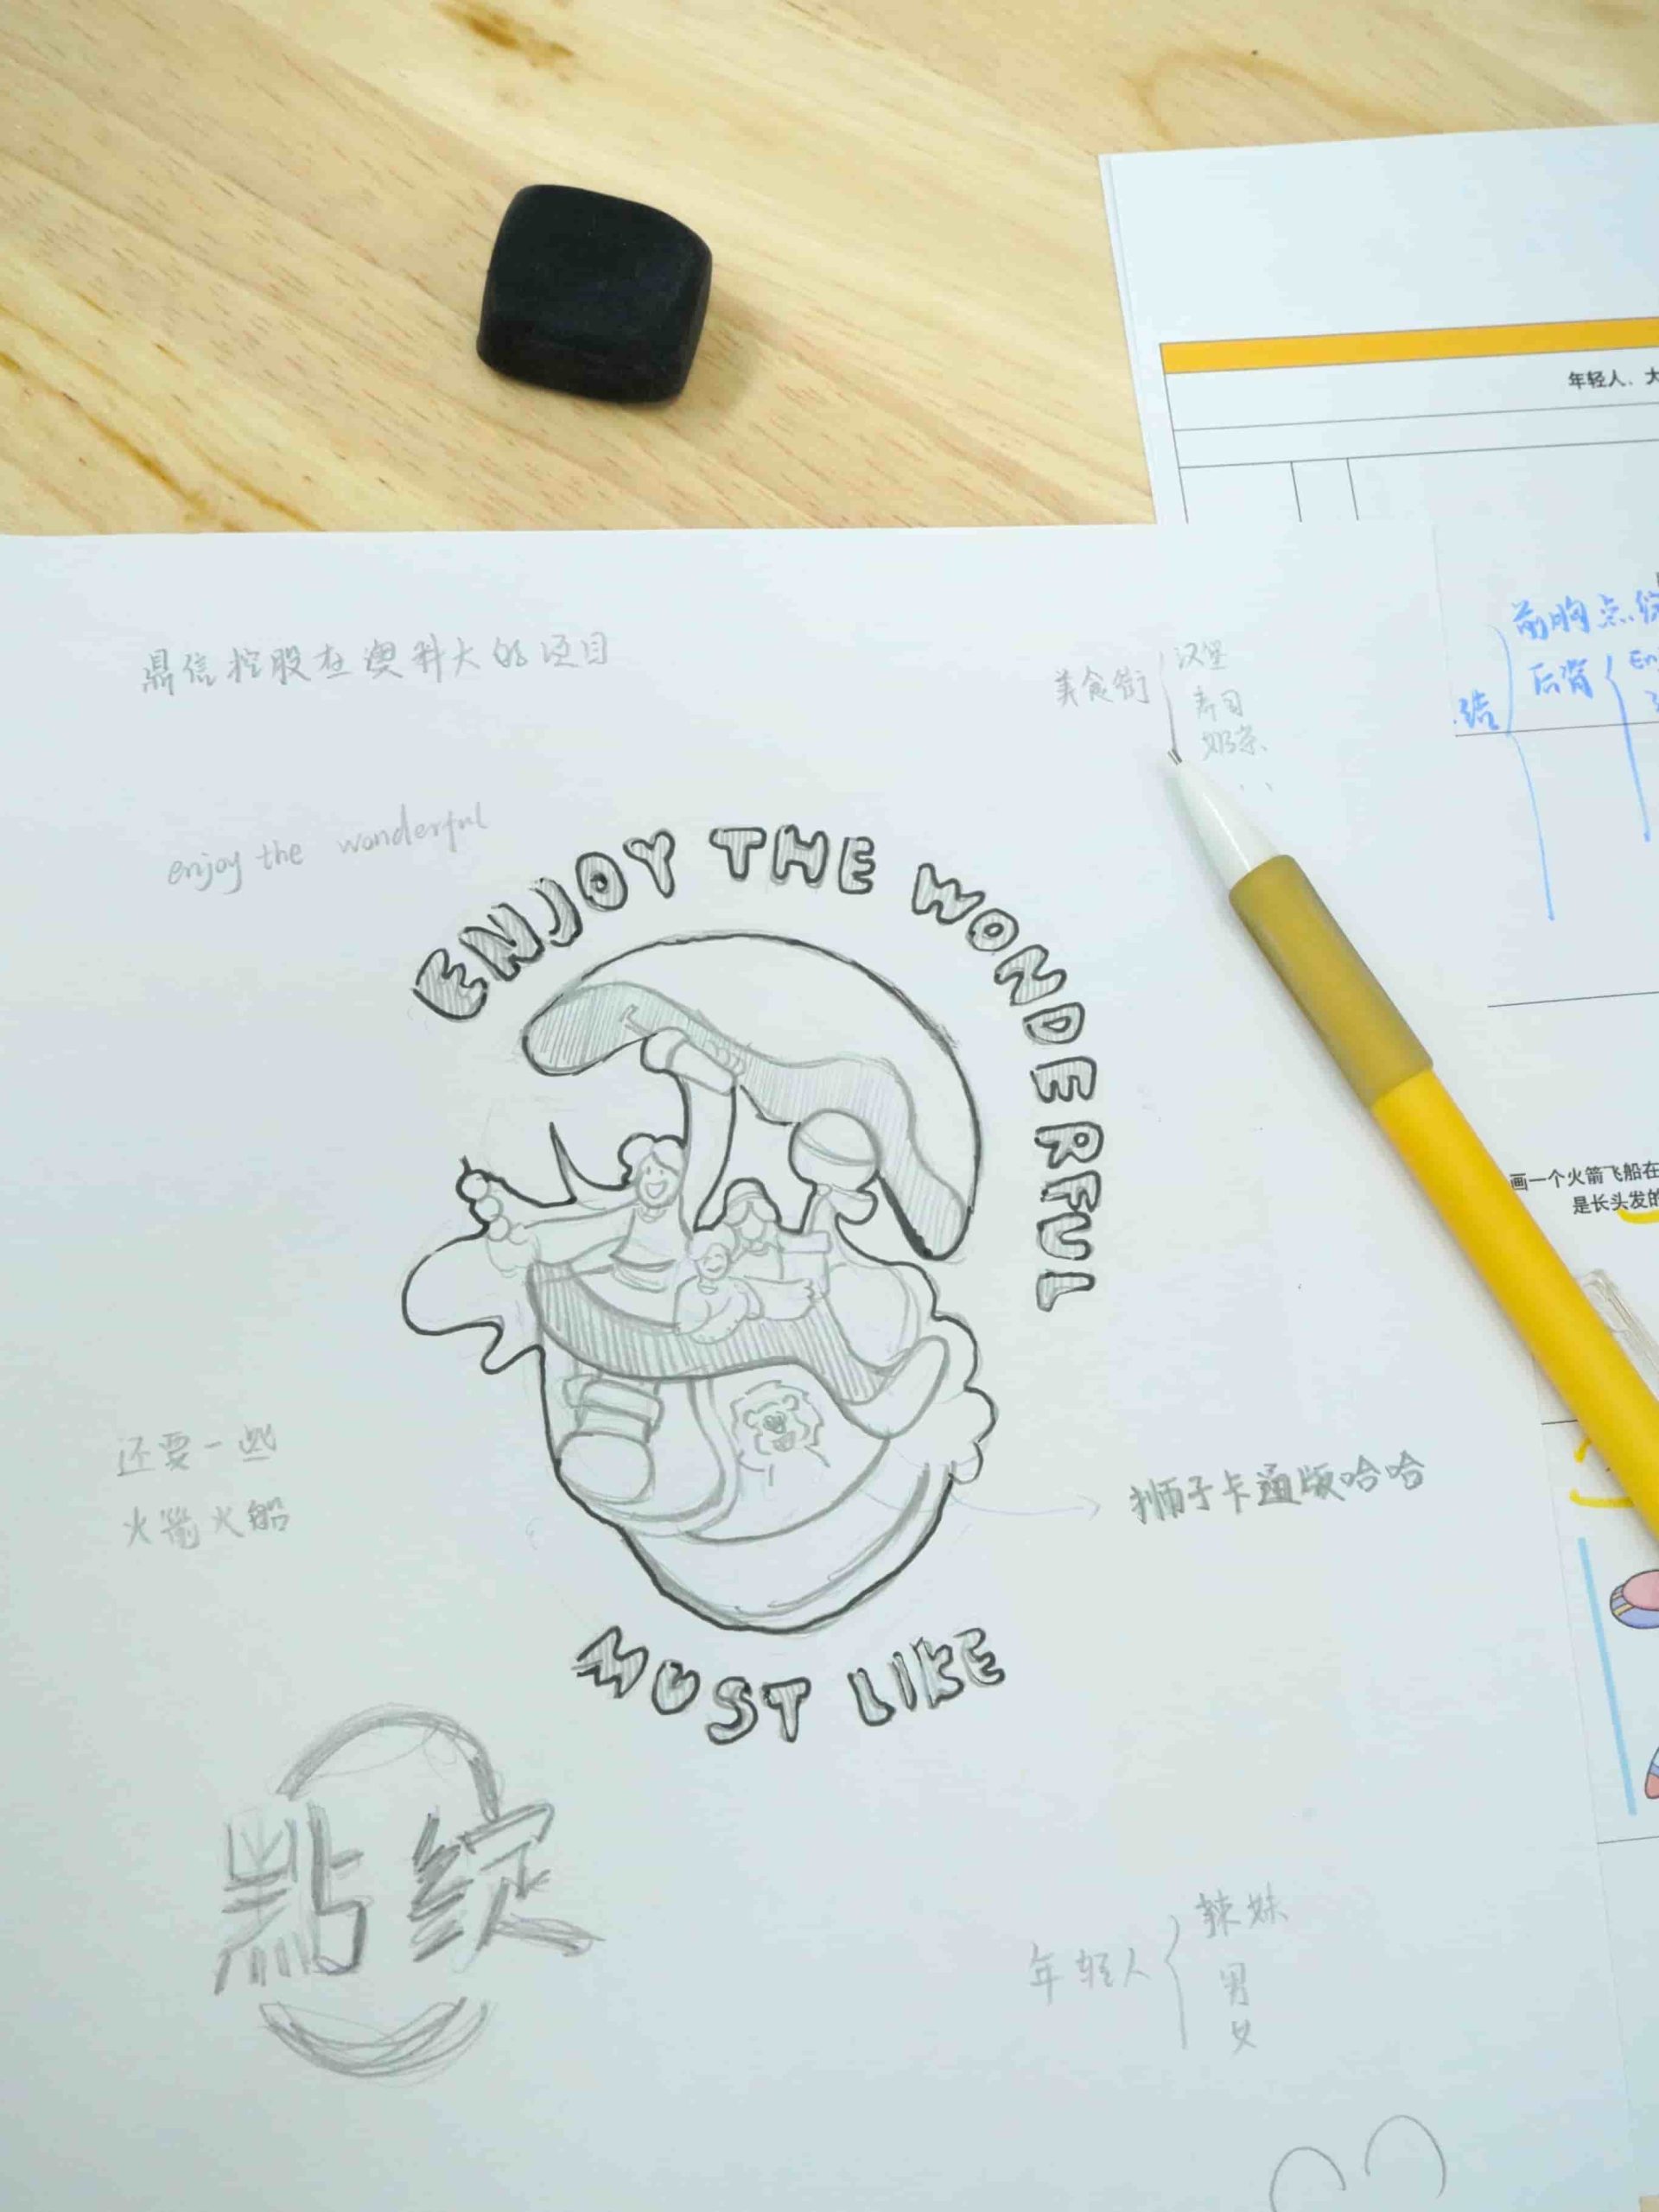 年轻人、大
鼎信控股在澳科大的项目
美食街
汉堡
寿司
奶茶
前胸点缀
后背
En
.结
enjoy the wonderful
ENJOY THE WONDERFUL
画一个火箭飞船在
是长头发的
还要一些
火箭火船
狮子卡通版哈哈
MUST LIKE
點綻
年轻人
辣妹
男
女